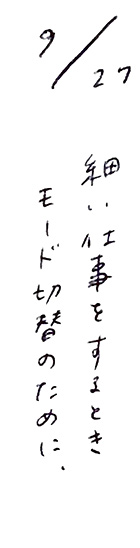 9/27
細い仕事をするとき
モード切替のために、